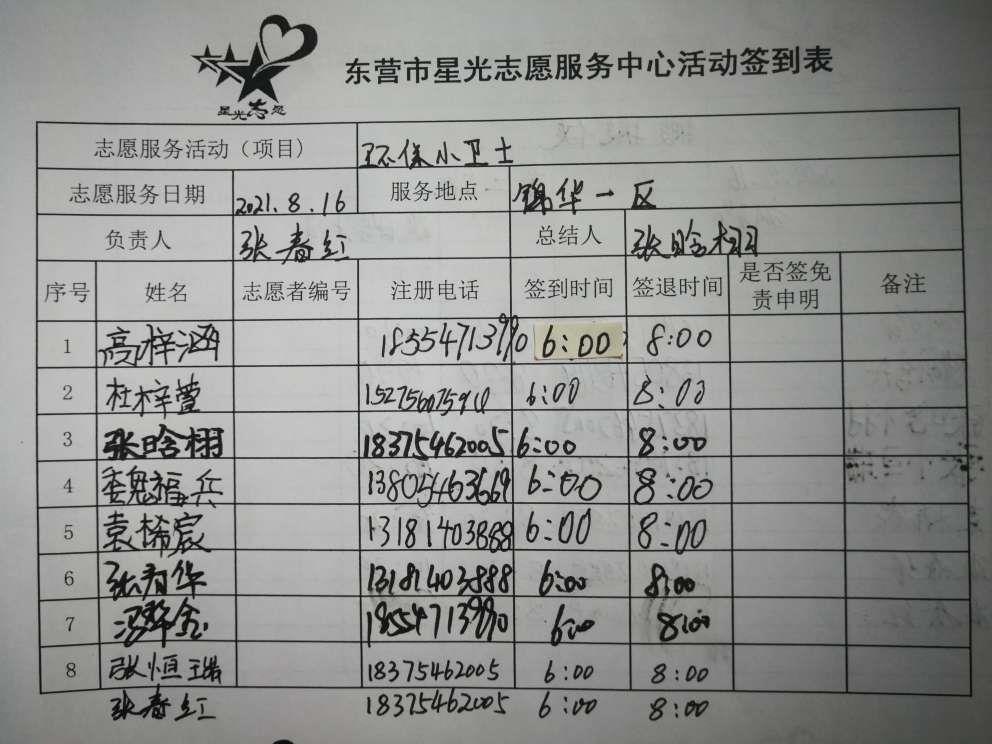 星光志愿
东营市星光志愿服务中心活动签到表
志愿服务活动（项目） 环保小卫士
志愿服务日期 2021.8.16 服务地点 锦华一区
负责人 张春红 总结人 张晗栩
序号 姓名 志愿者编号 注册电话 签到时间 签退时间 是否签免责申明 备注
1 高梓涵 18554713990 6:00 8:00
2 杜梓萱 15275607594 6:00 8:00
3 张晗栩 18375462005 6:00 8:00
4 魏福兵 13805463669 6:00 8:00
5 袁桸宸 13181403888 6:00 8:00
6 张春华 13181403888 6:00 8:00
7 18554713990 6:00 8:00
8 张恒瑞 18375462005 6:00 8:00
张春红 18375462005 6:00 8:00